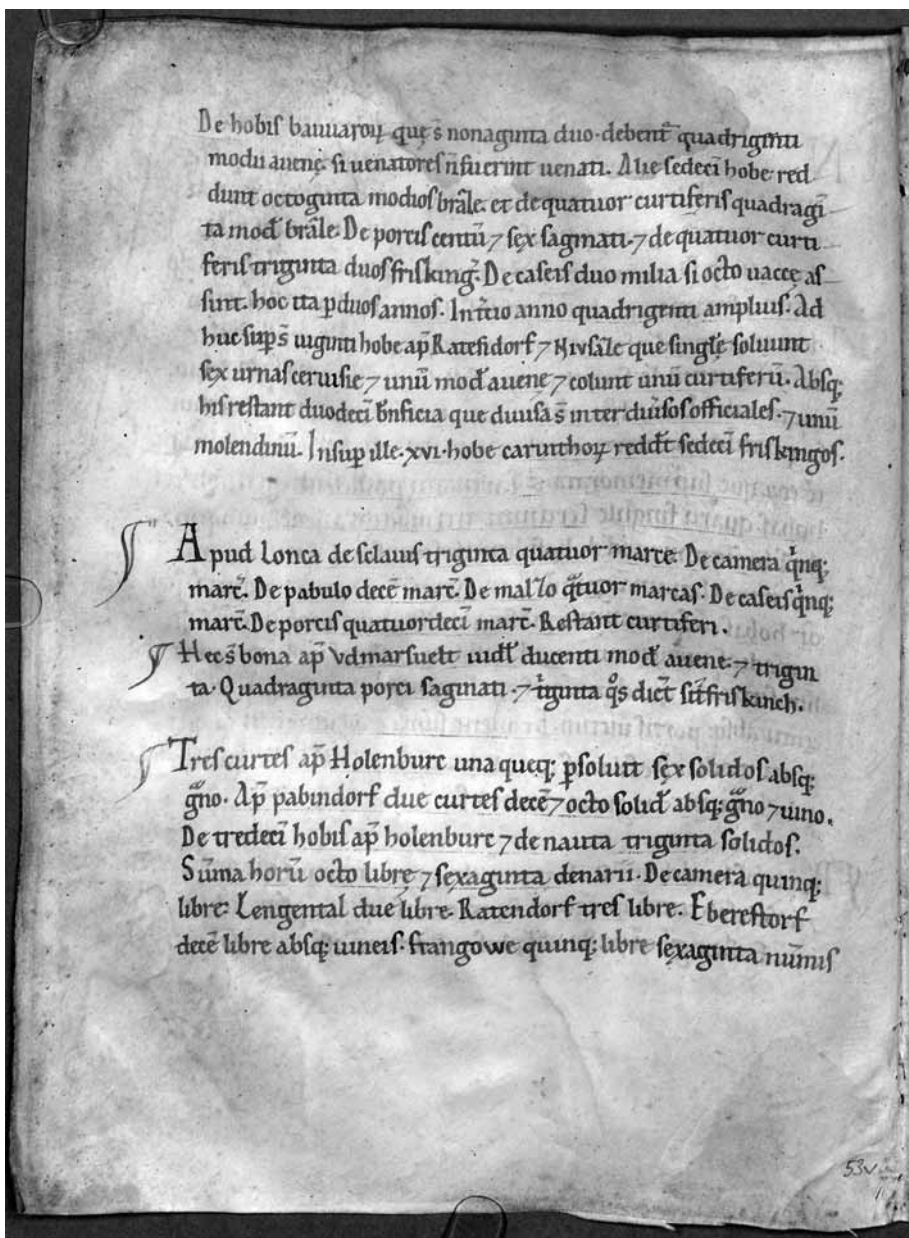 De hobis bauuaroꝝ que s̄ nonaginta duo · debent᷑ quadringenti
modii auene. si uenatores n̄ fuerint uenati. Alie sedeci hobe red
dunt octoginta modios brāle. et de quatuor curtiferis quadragī
ta mod̄ brāle. De porcis centū ⁊ sex saginati. ⁊ de quatuor curti
feris triginta duos frisking᷑. De caseis duo milia si octo uacce as
sint. hoc ita ꝑ duos annos. In t̄tio anno quadrigenti amplius. Ad
huc suꝑ s̄ uiginti hobe ap̄ Ratesidorf ⁊ Nivsāle que singłe soluunt
sex urnas ceruisie ⁊ unū mod̄ auene ⁊ colunt unū curtiferū. Absq;
his restant duodeci b̄nficia que diuisa s̄ inter diūsos officiales. ⁊ unū
molendinū. Insuꝑ ille · xvi · hobe carinthoꝝ redd̄t sedeci friskingos.
Apud Lonca de sclauis triginta quatuor marce. De camera qͥnq;
marc̄. De pabulo decē marc̄. De mal᷑lo qͣtuor marcas. De caseis qͥnq;
marc̄. De porcis quatuordeci marc̄. Restant curtiferi.
Hec s̄ bona ap̄ Vdmarsuelt uidł ducenti mod̄ auene. ⁊ trigin
ta. Quadraginta porci saginati. ⁊ tͥginta qͦs dic̄t sīt friskinch.
Tres curtes ap̄ Holenburc una queq; ꝑsoluit sex solidos absq;
gͣno. Ap̄ pabindorf due curtes decē ⁊ octo solid̄ absq; gͣno ⁊ uino.
De tredecī hobis ap̄ holenburc ⁊ de nauta triginta solidos.
Sūma horū octo libre ⁊ sexaginta denarii. De camera quinq;
libre. Lengental due libre. Ratendorf tres libre. Eberestorf
decē libre absq; uineis. frangowe quinq; libre sexaginta nūmis
53v